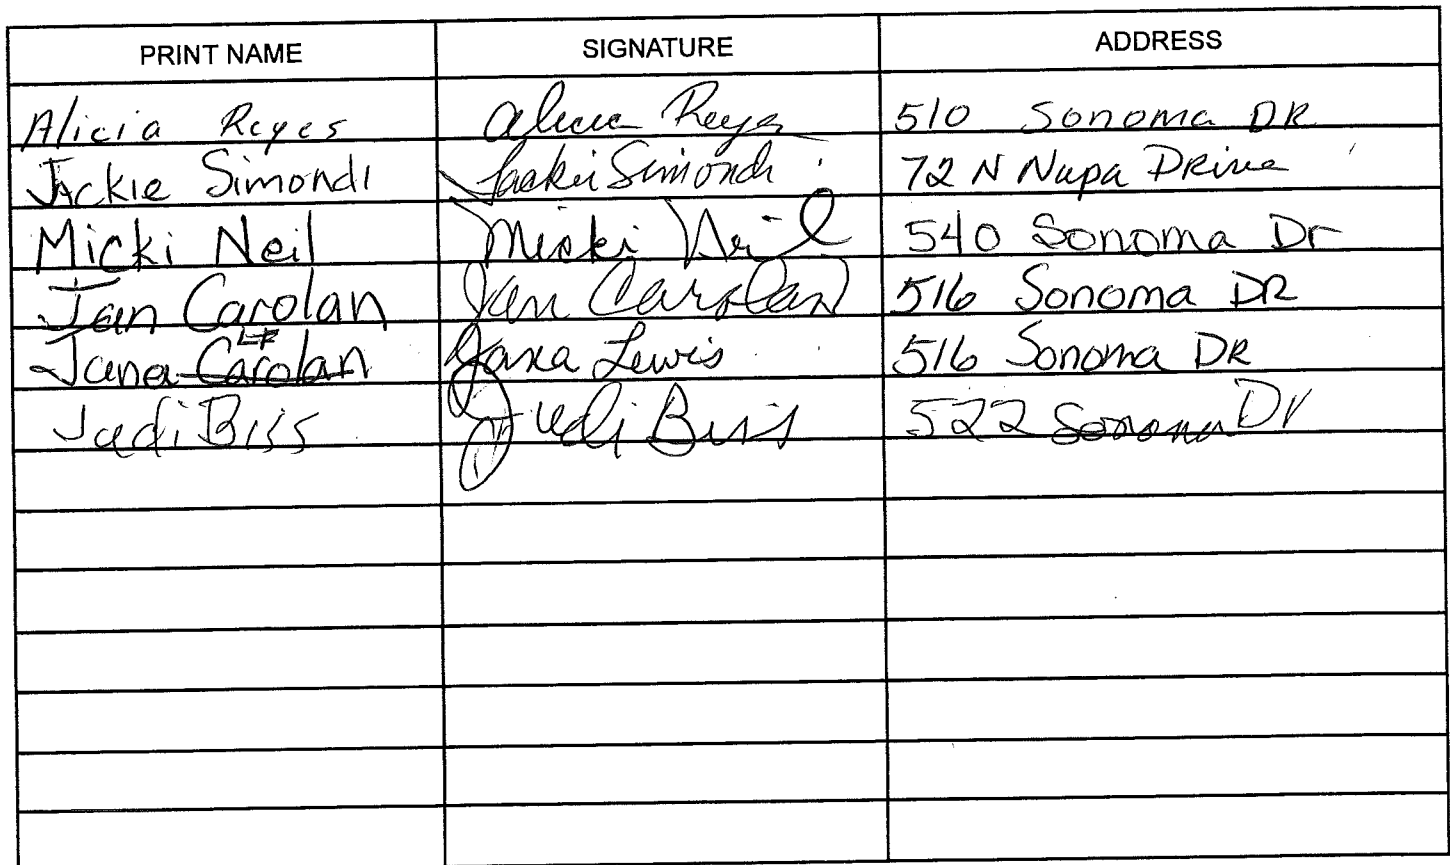 PRINT NAME SIGNATURE ADDRESS
Alicia Reyes Alicia Reyes 510 Sonoma DR
Jackie Simondi Jackie Simondi 72 N Napa Drive
Micki Neil Micki Neil 540 Sonoma Dr
Jan Carolan Jan Carolan 516 Sonoma DR
Jana Carolan Jana Lewis 516 Sonoma DR
Judi Biss Judi Biss 522 Sonoma Dr